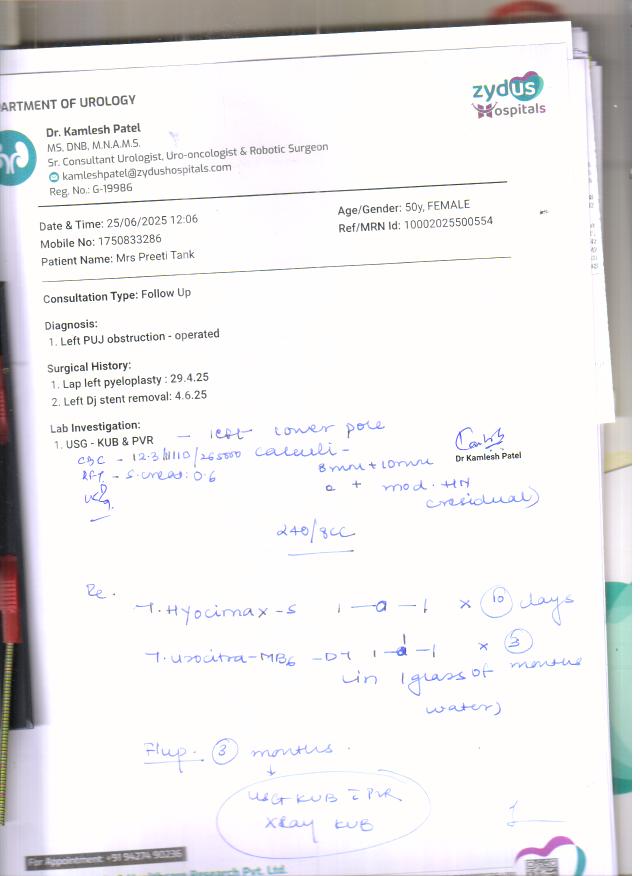 ARTMENT OF UROLOGY
zydus
Hospitals
Dr. Kamlesh Patel
MS, DNB, M.N.A.M.S.
Sr. Consultant Urologist, Uro-oncologist & Robotic Surgeon
kamleshpatel@zydushospitals.com
Reg. No.: G-19986
Date & Time: 25/06/2025 12:06
Age/Gender: 50y, FEMALE
Mobile No: 1750833286
Ref/MRN Id: 10002025500554
Patient Name: Mrs Preeti Tank
Consultation Type: Follow Up
Diagnosis:
1. Left PUJ obstruction - operated
Surgical History:
1. Lap left pyeloplasty : 29.4.25
2. Left Dj stent removal: 4.6.25
Lab Investigation:
1. USG - KUB & PVR - left lower pole
calculi -
CBC - 12.3/ /265000
RFT - S. creat: 0.6
8mm + 10mm
+ mod. HN
(residual)
Dr Kamlesh Patel
240/8CC
T. Hyocimax-S 1 - - 1 x 10 days
T. Urocitra-MB6 - DT 1 - 1 - 1 x 3 months
(in 1 glass of
water)
F/up. 3 months.
USG KUB c PVR
XRay KUB
For Appointment: +91 94274 90236
Healthcare Research Pvt. Ltd.